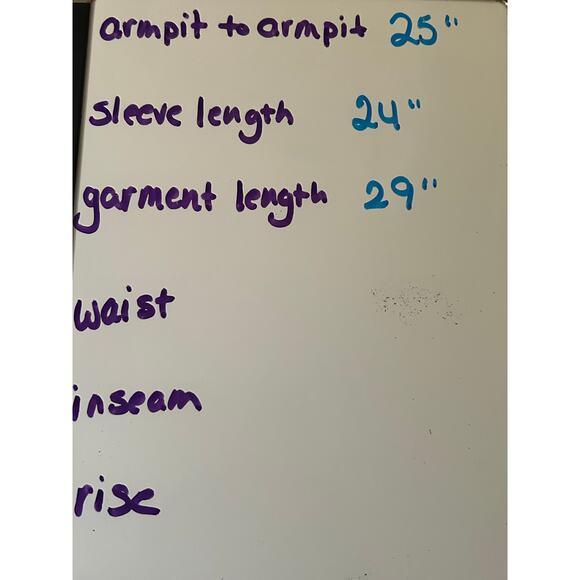 armpit to armpit 25"
sleeve length 24"
garment length 29"
waist
inseam
rise